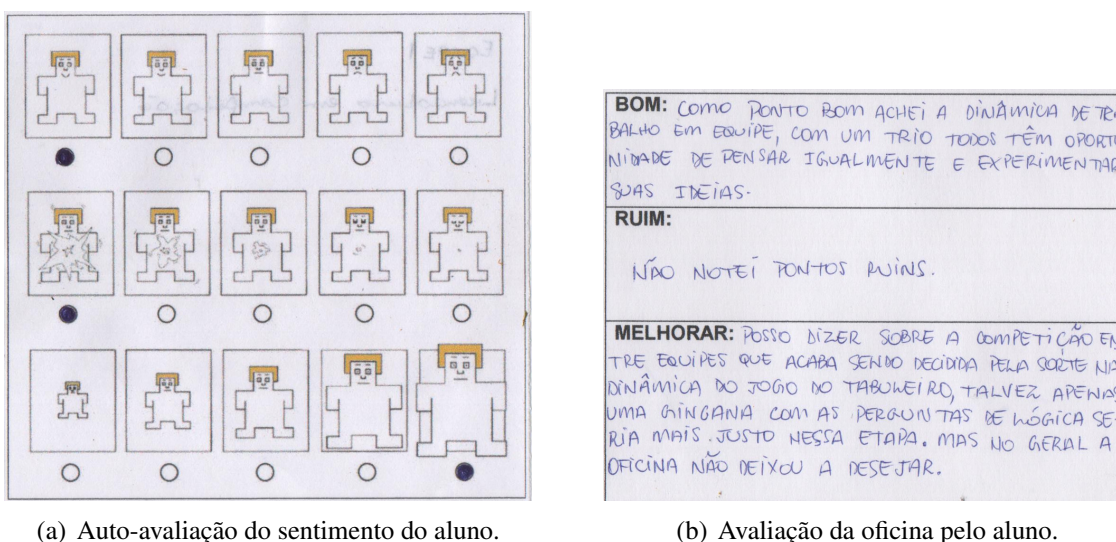 BOM: COMO PONTO BOM ACHEI A DINÂMICA DE TRA
BALHO EM EQUIPE, COM UM TRIO TODOS TÊM OPORTU
NIDADE DE PENSAR IGUALMENTE E EXPERIMENTAR
SUAS IDEIAS.
RUIM:
NÃO NOTEI PONTOS RUINS.
MELHORAR: POSSO DIZER SOBRE A COMPETIÇÃO EN
TRE EQUIPES QUE ACABA SENDO DECIDIDA PELA SORTE NA
DINÂMICA DO JOGO DO TABULEIRO, TALVEZ APENAS
UMA GINGANA COM AS PERGUNTAS DE LÓGICA SE
RIA MAIS JUSTO NESSA ETAPA. MAS NO GERAL A
OFICINA NÃO DEIXOU A DESEJAR.
(a) Auto-avaliação do sentimento do aluno.
(b) Avaliação da oficina pelo aluno.